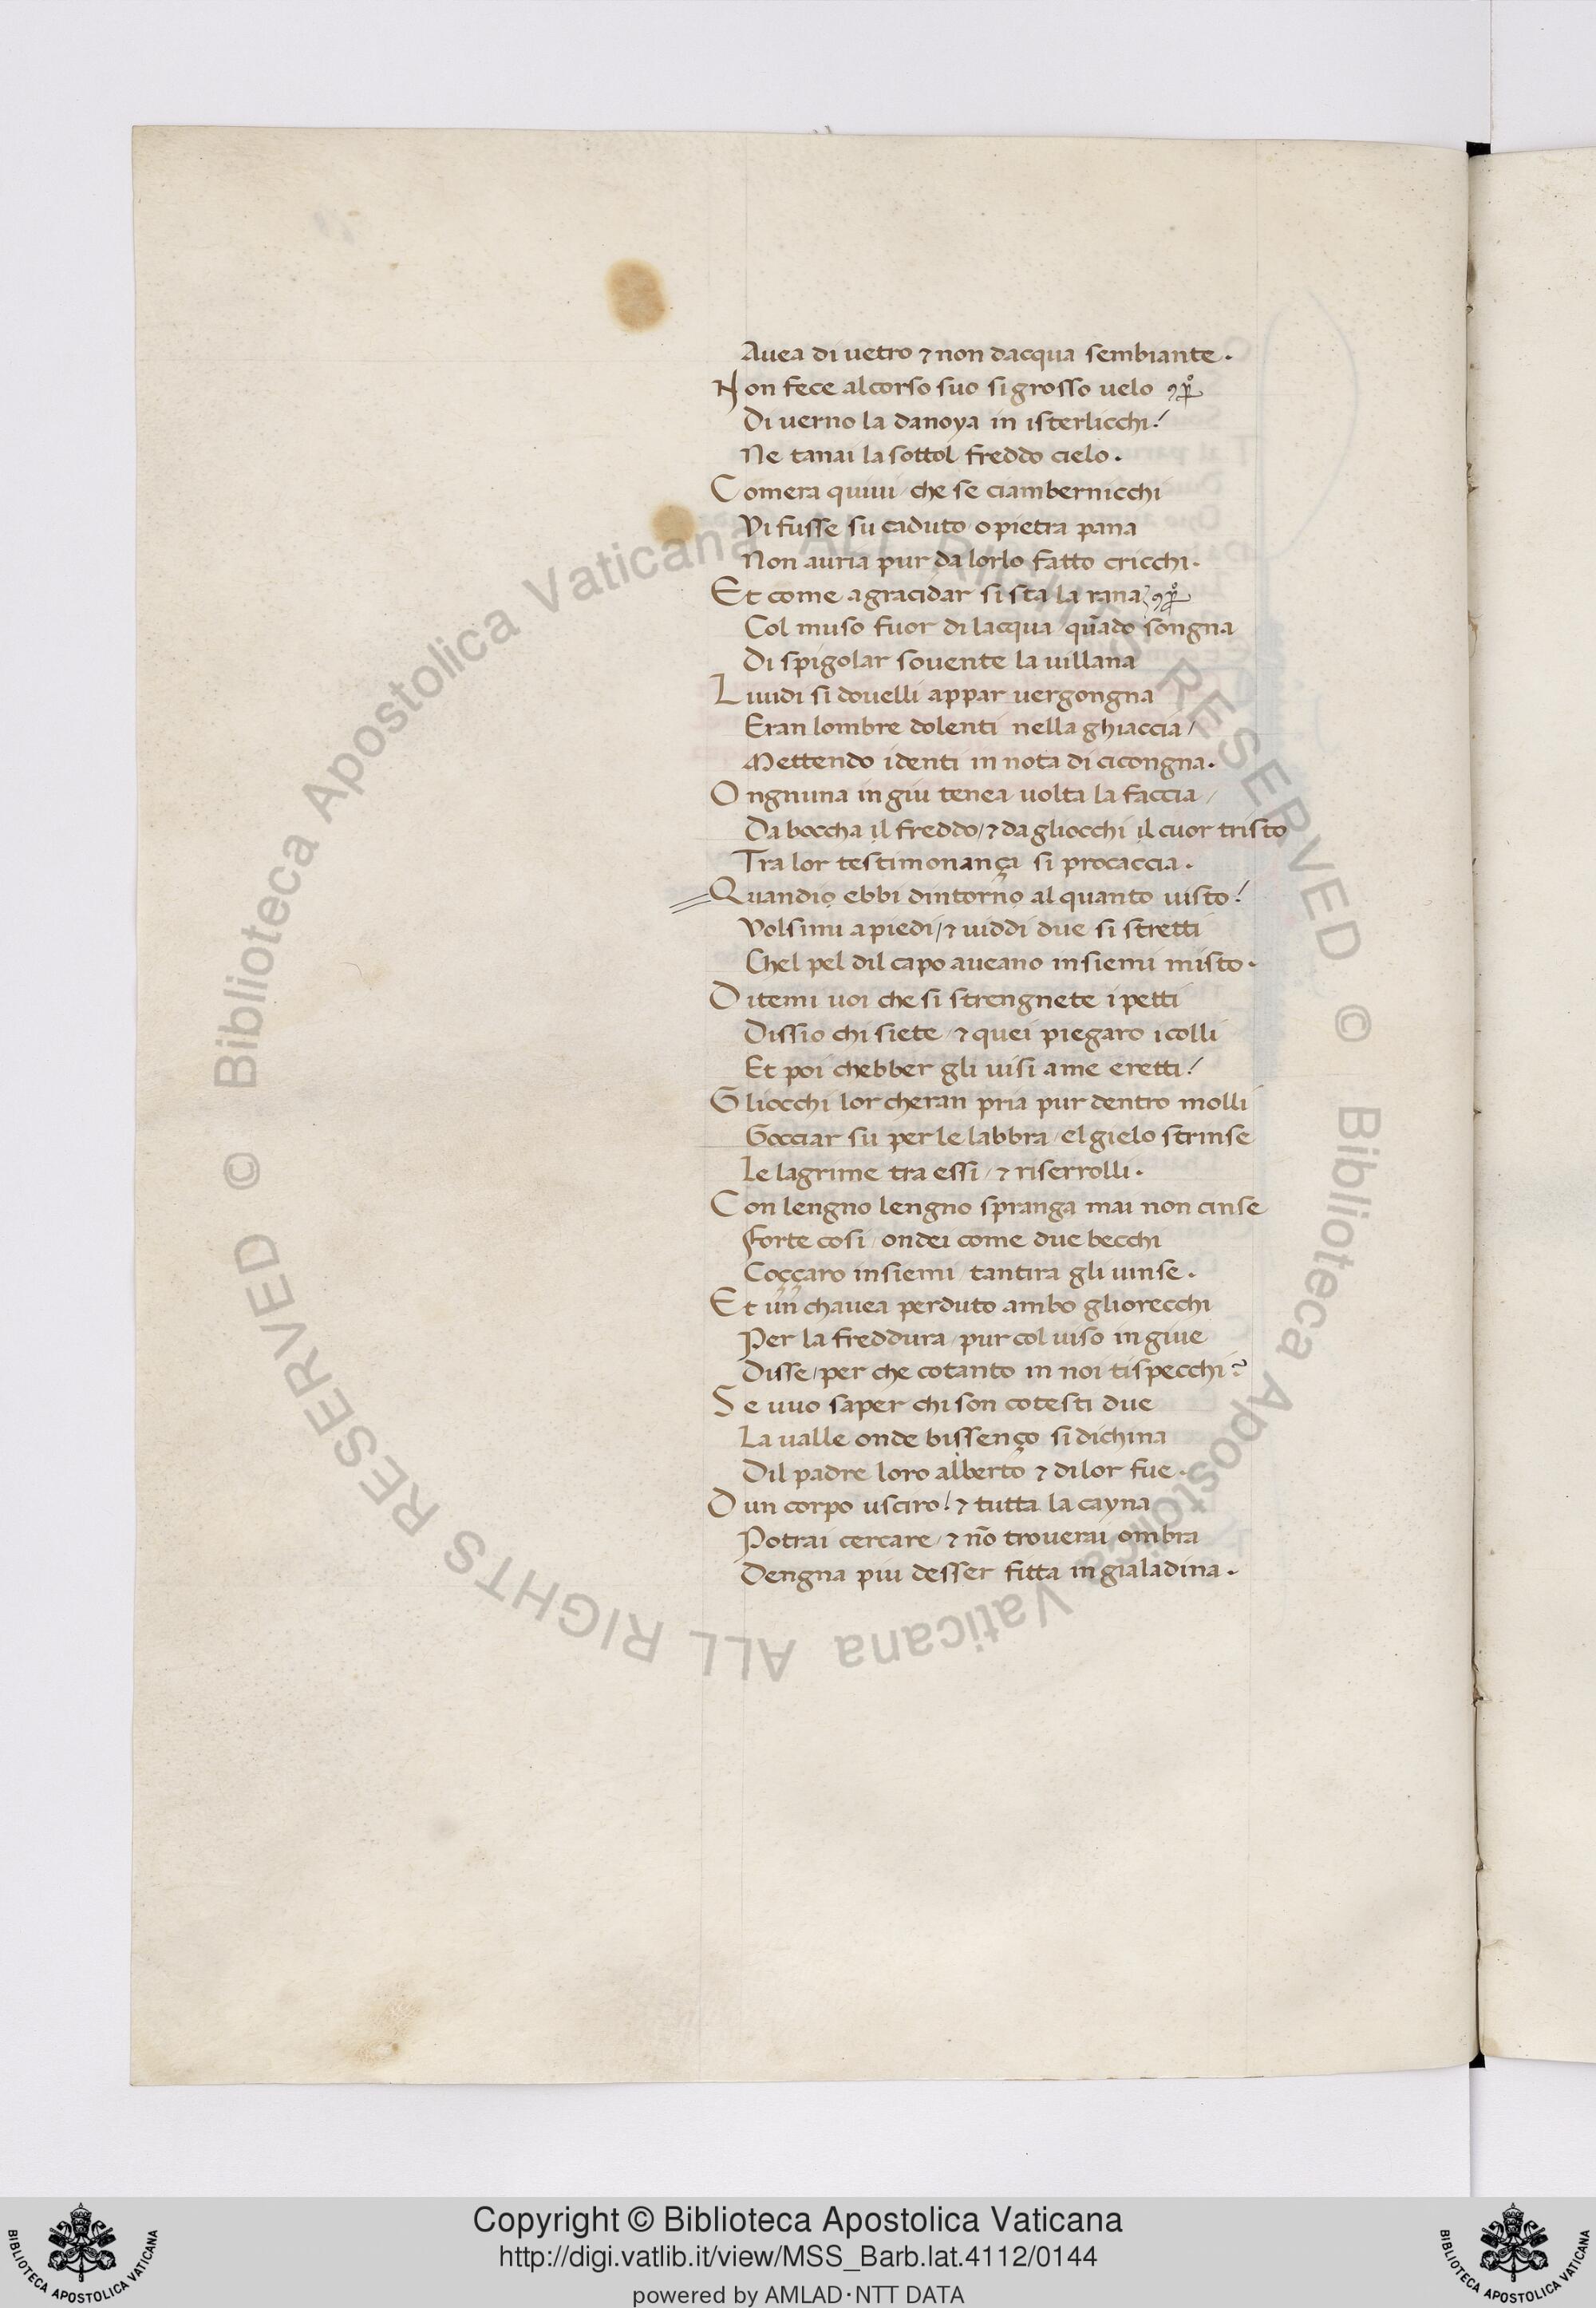 Auea di uetro ⁊ non dacqua sembiante.
Non fece al corso suo si grosso uelo
Di uerno la danoya in isterlicchi!
Ne tanai la sottol freddo cielo.
Comera quiui / che se ciambernicchi
Vi fusse su caduto / o pietra pana
Non auria pur da lorlo fatto cricchi.
Et come a gracidar si sta la rana
Col muso fuor di lacqua / qua̅do songna
Di spigolar souente la uillana
Liuidi si douelli appar uergongna
Eran lombre dolenti nella ghiaccia /
Mettendo i denti in nota di cicongna.
Ongnuna in giu tenea uolta la faccia /
Da boccha il freddo / ⁊ da gliocchi il cuor tristo
Tra lor testimonança si procaccia.
Quandio ebbi dintorno al quanto uisto!
Volsimi a piedi / ⁊ uiddi due si stretti
Chel pel dil capo aueano insiemi misto.
Ditemi uoi che si strengnete i petti
Dissio chi siete / ⁊ quei piegaro i colli
Et poi chebber gli uisi a me eretti!
Gliocchi lor cheran pria pur dentro molli
Gocciar su per le labbra / el gielo strinse
Le lagrime tra essi / ⁊ riserrolli.
Con lengno lengno spranga mai non cinse
Forte cosi / ondei come due becchi
Coççaro insiemi / tantira gli uinse.
Et un chauea perduto ambo gliorecchi
Per la freddura / pur col uiso in giue
Disse / per che cotanto in noi ti specchi?
Se uuo saper chi son cotesti due
La ualle onde bissenço si dichina
Dil padre loro alberto ⁊ di lor fue.
Dun corpo usciro! ⁊ tutta la cayna
Potrai cercare / ⁊ no̅ trouerai ombra
Dengna piu desser fitta in gialadina.
© Biblioteca Apostolica Vaticana ALL RIGHTS RESERVED © Biblioteca Apostolica Vaticana ALL RIGHTS RESERVED
Copyright © Biblioteca Apostolica Vaticana
http://digi.vatlib.it/view/MSS_Barb.lat.4112/0144
powered by AMLAD·NTT DATA
BIBLIOTECA APOSTOLICA VATICANA
BIBLIOTECA APOSTOLICA VATICANA